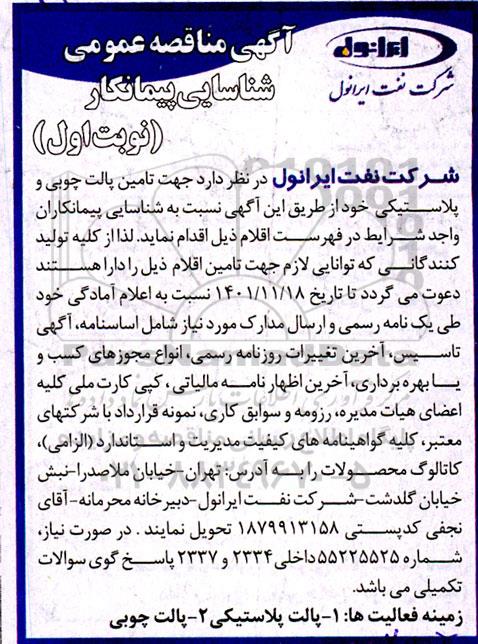 ایرانول
شرکت نفت ایرانول
آگهی مناقصه عمومی
شناسایی پیمانکار
(نوبت اول)
شرکت نفت ایرانول در نظر دارد جهت تامین پالت چوبی و
پلاستیکی خود از طریق این آگهی نسبت به شناسایی پیمانکاران
واجد شرایط در فهرست اقلام ذیل اقدام نماید. لذا از کلیه تولید
کنندگانی که توانایی لازم جهت تامین اقلام ذیل را دارا هستند
دعوت می گردد تا تاریخ ۱۴۰۱/۱۱/۱۸ نسبت به اعلام آمادگی خود
طی یک نامه رسمی و ارسال مدارک مورد نیاز شامل اساسنامه، آگهی
تاسیس، آخرین تغییرات روزنامه رسمی، انواع مجوزهای کسب و
یا بهره برداری، آخرین اظهار نامه مالیاتی، کپی کارت ملی کلیه
اعضای هیات مدیره، رزومه و سوابق کاری، نمونه قرارداد با شرکتهای
معتبر، کلیه گواهینامه های کیفیت مدیریت و استاندارد (الزامی)،
کاتالوگ محصولات را به آدرس: تهران-خیابان ملاصدرا-نبش
خیابان گلدشت-شرکت نفت ایرانول-دبیرخانه محرمانه-آقای
نجفی کدپستی ۱۸۷۹۹۱۳۱۵۸ تحویل نمایند. در صورت نیاز،
شماره ۵۵۲۲۵۵۲۵ داخلی ۲۳۳۴ و ۲۳۳۷ پاسخ گوی سوالات
تکمیلی می باشد.
زمینه فعالیت ها: ۱-پالت پلاستیکی ۲-پالت چوبی